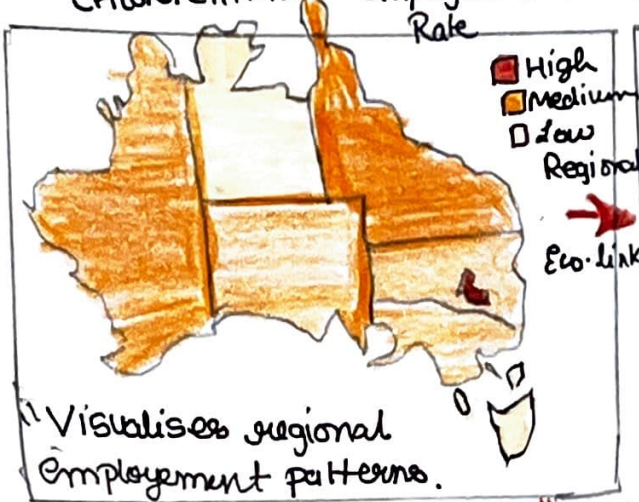 Rate
High
Medium
Low
Regional
Eco-link
"Visualises regional
employement patterns.